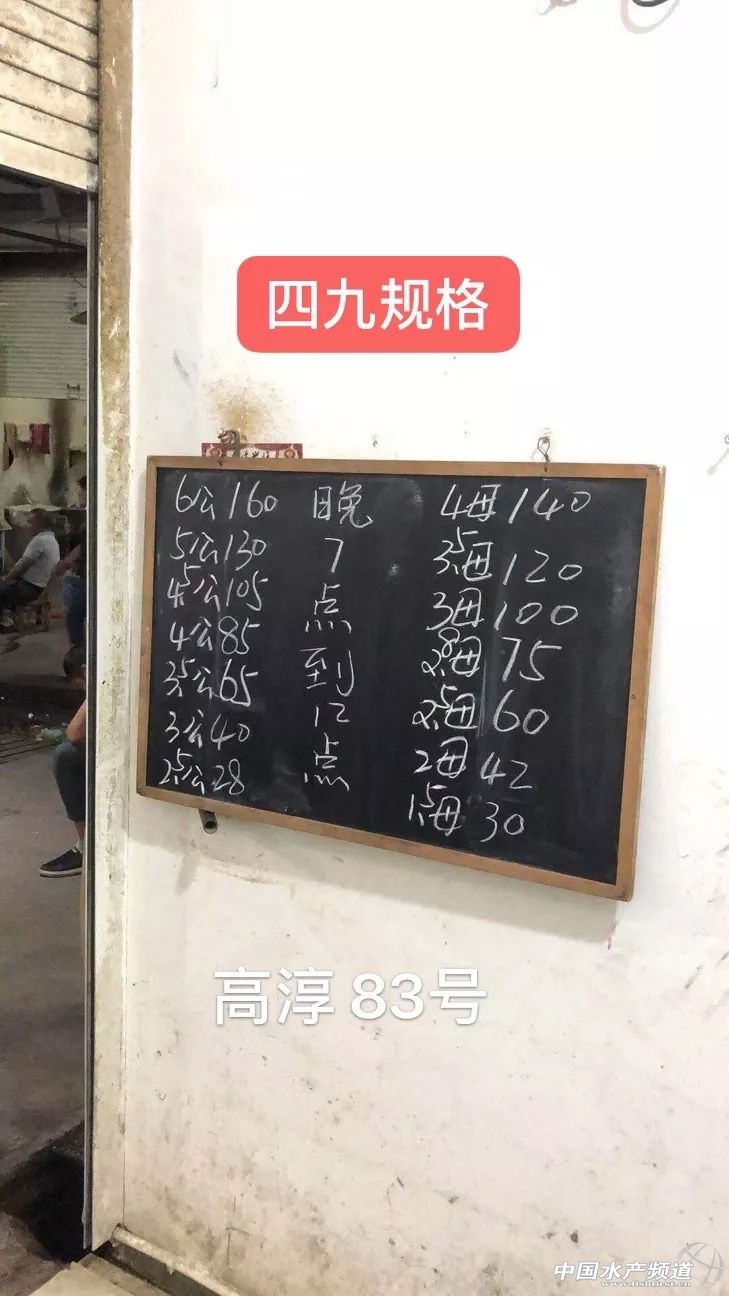 四九规格
6公160
5公130
4.5公105
4公85
3.5公65
3公40
2.5公28
晚
7
点
到
12
点
4母140
3.5母120
3母100
2.8母75
2.5母60
2母42
1.5母30
高淳 83号
中国水产频道
www.fishfirst.cn